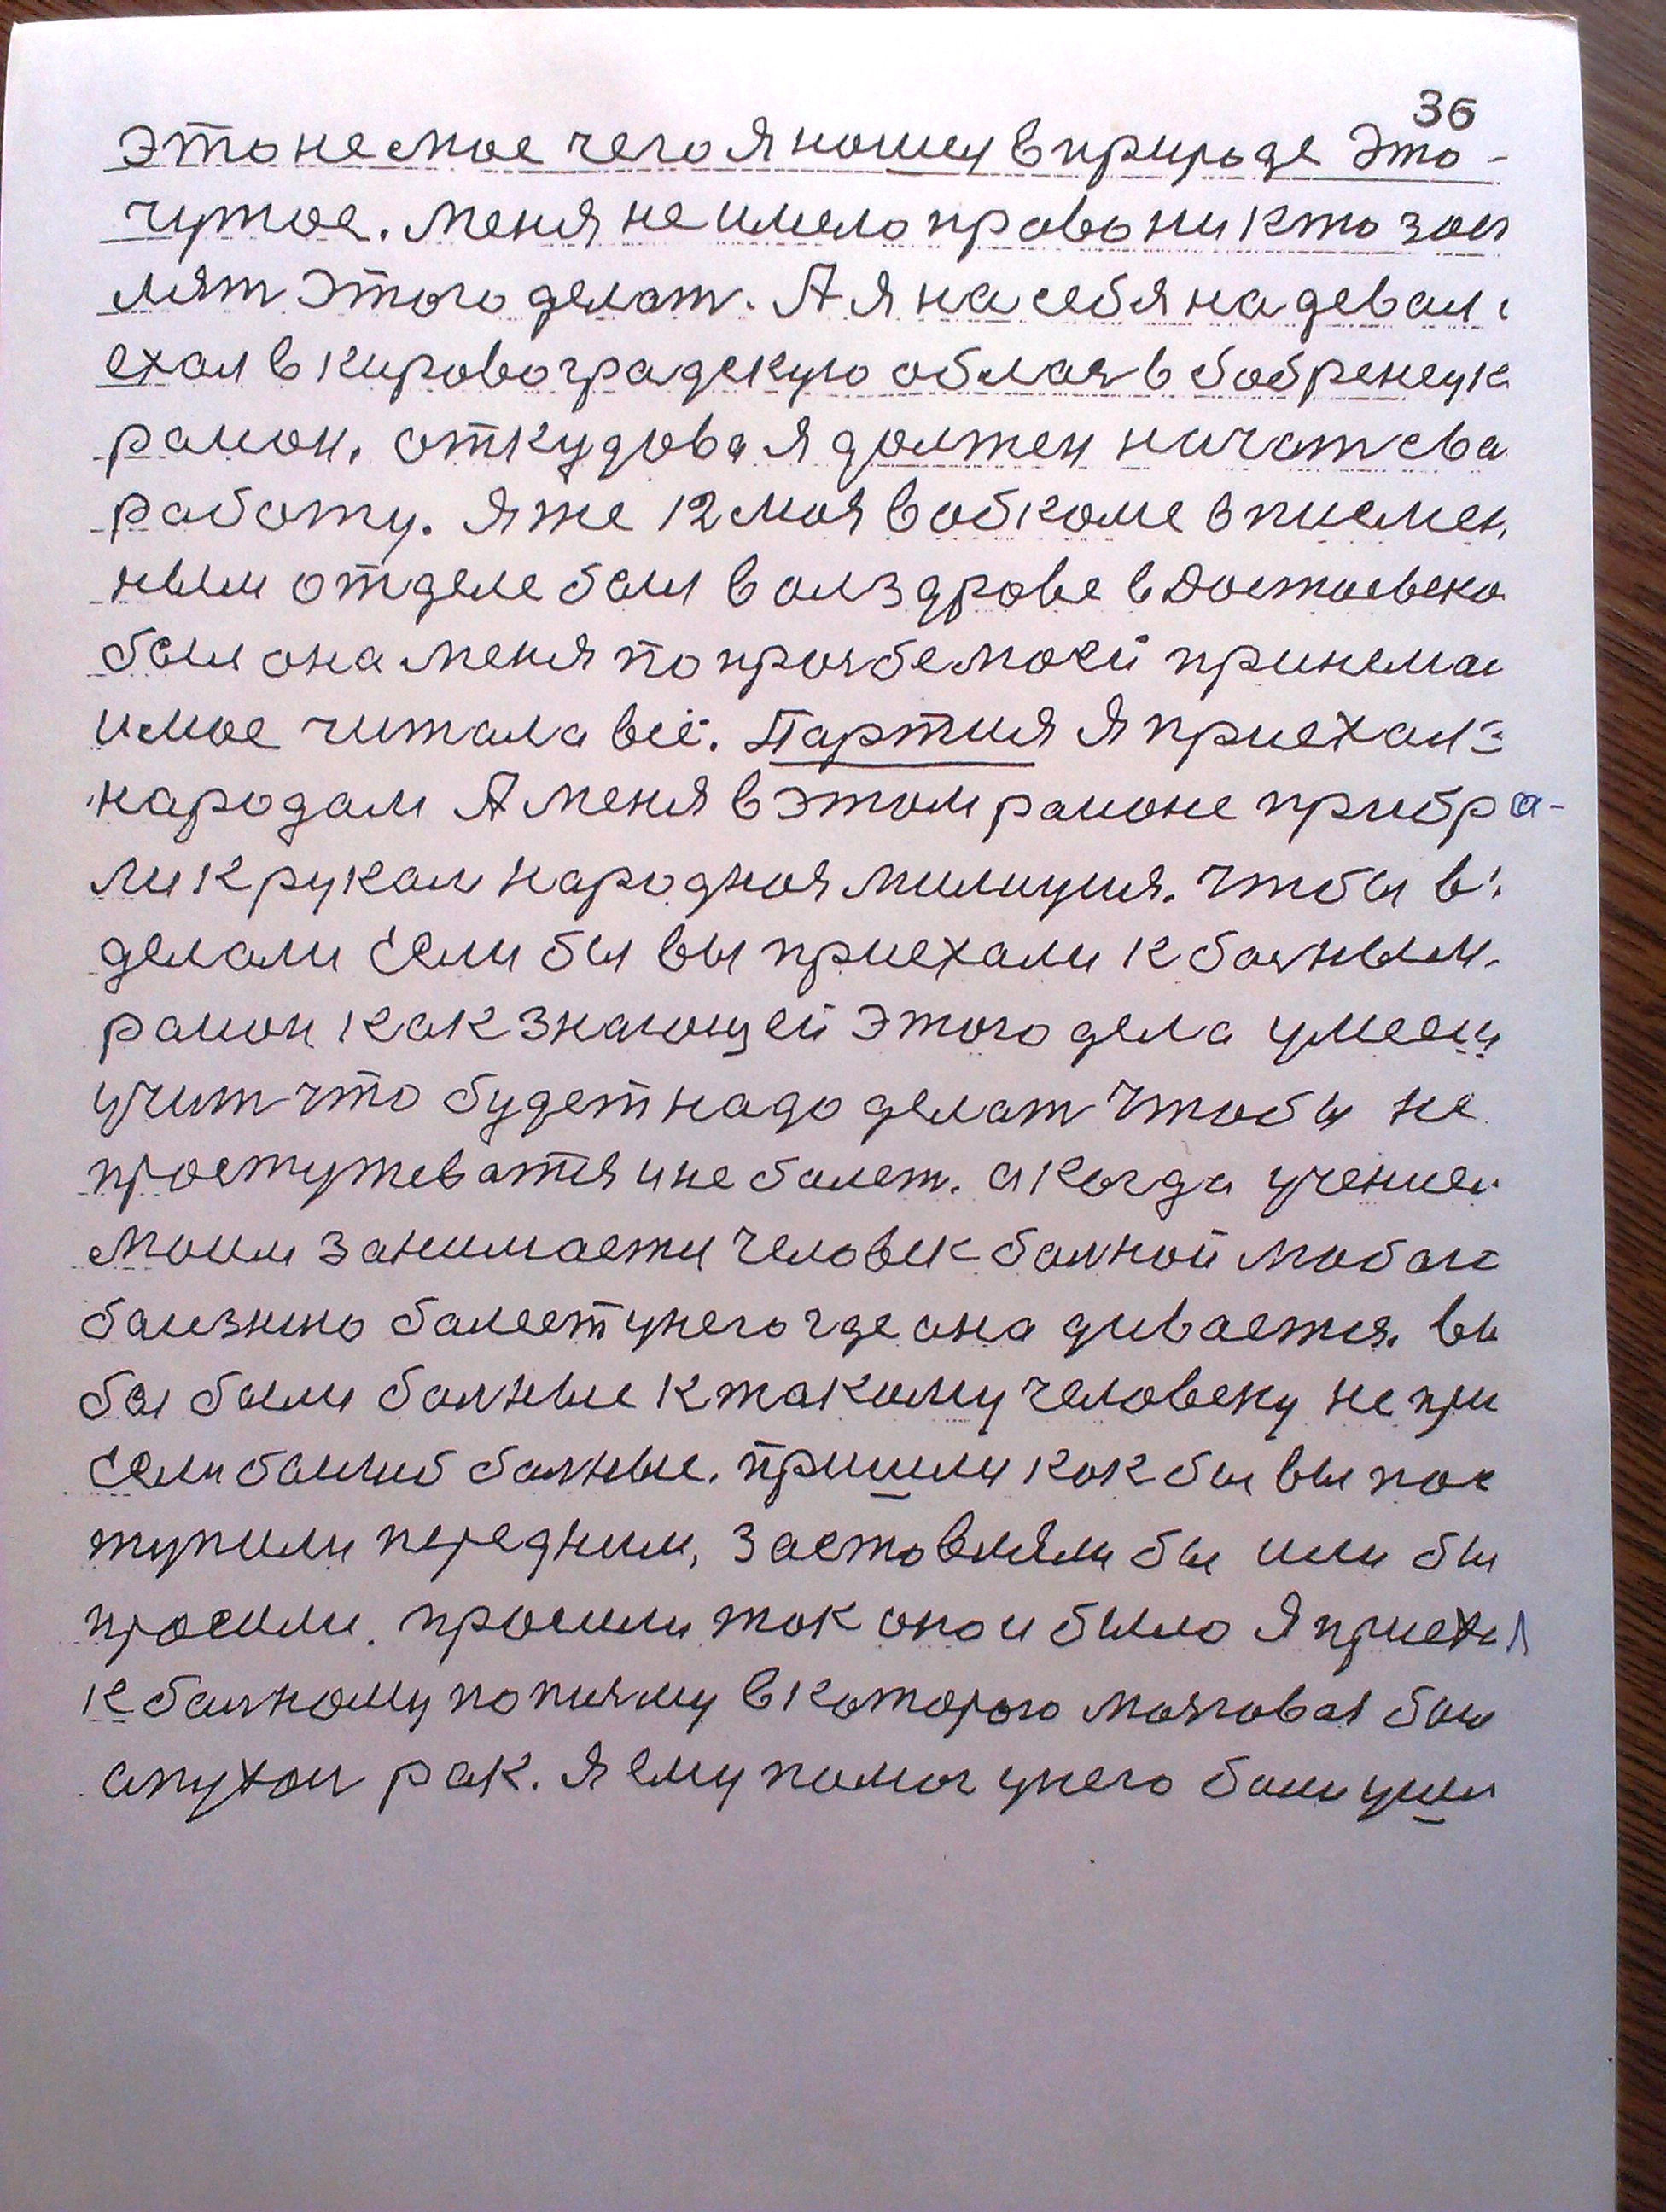 36
это не мое чего я ношу в природе Это -
чужое. Меня не имело право ни кто зас
лят этого делат. А я на себя надевал
ехал в кировоградскую облась в бобренецк
раион. откудова я должен начат сва
работу. Я же 12 мая в обкоме в писмен
ным отделе был в олздрове в Достоевско
был она меня по прозбе моей принема
и мое читала всё. Партия я приехал
народам А меня в этом раионе прибра-
ли к рукам народная милиция. Чтобы в
делали Если бы вы приехали к болным.
раион как знающей этого дела умеещ
учит что будет надо делат Чтобы не
простужеватся и не болет. а когда учением
моим занимается человек болной любой
болезнию болеет у него где она дивается. вы
бы были болные к такому человеку не при
Если болные. пришли как бы вы пос
тупили перед ним, заставляли бы или бы
просили. просили так оно и было Я приехал
к болному по писму в которого мозговая был
апухол рак. Я ему помог у него были уши